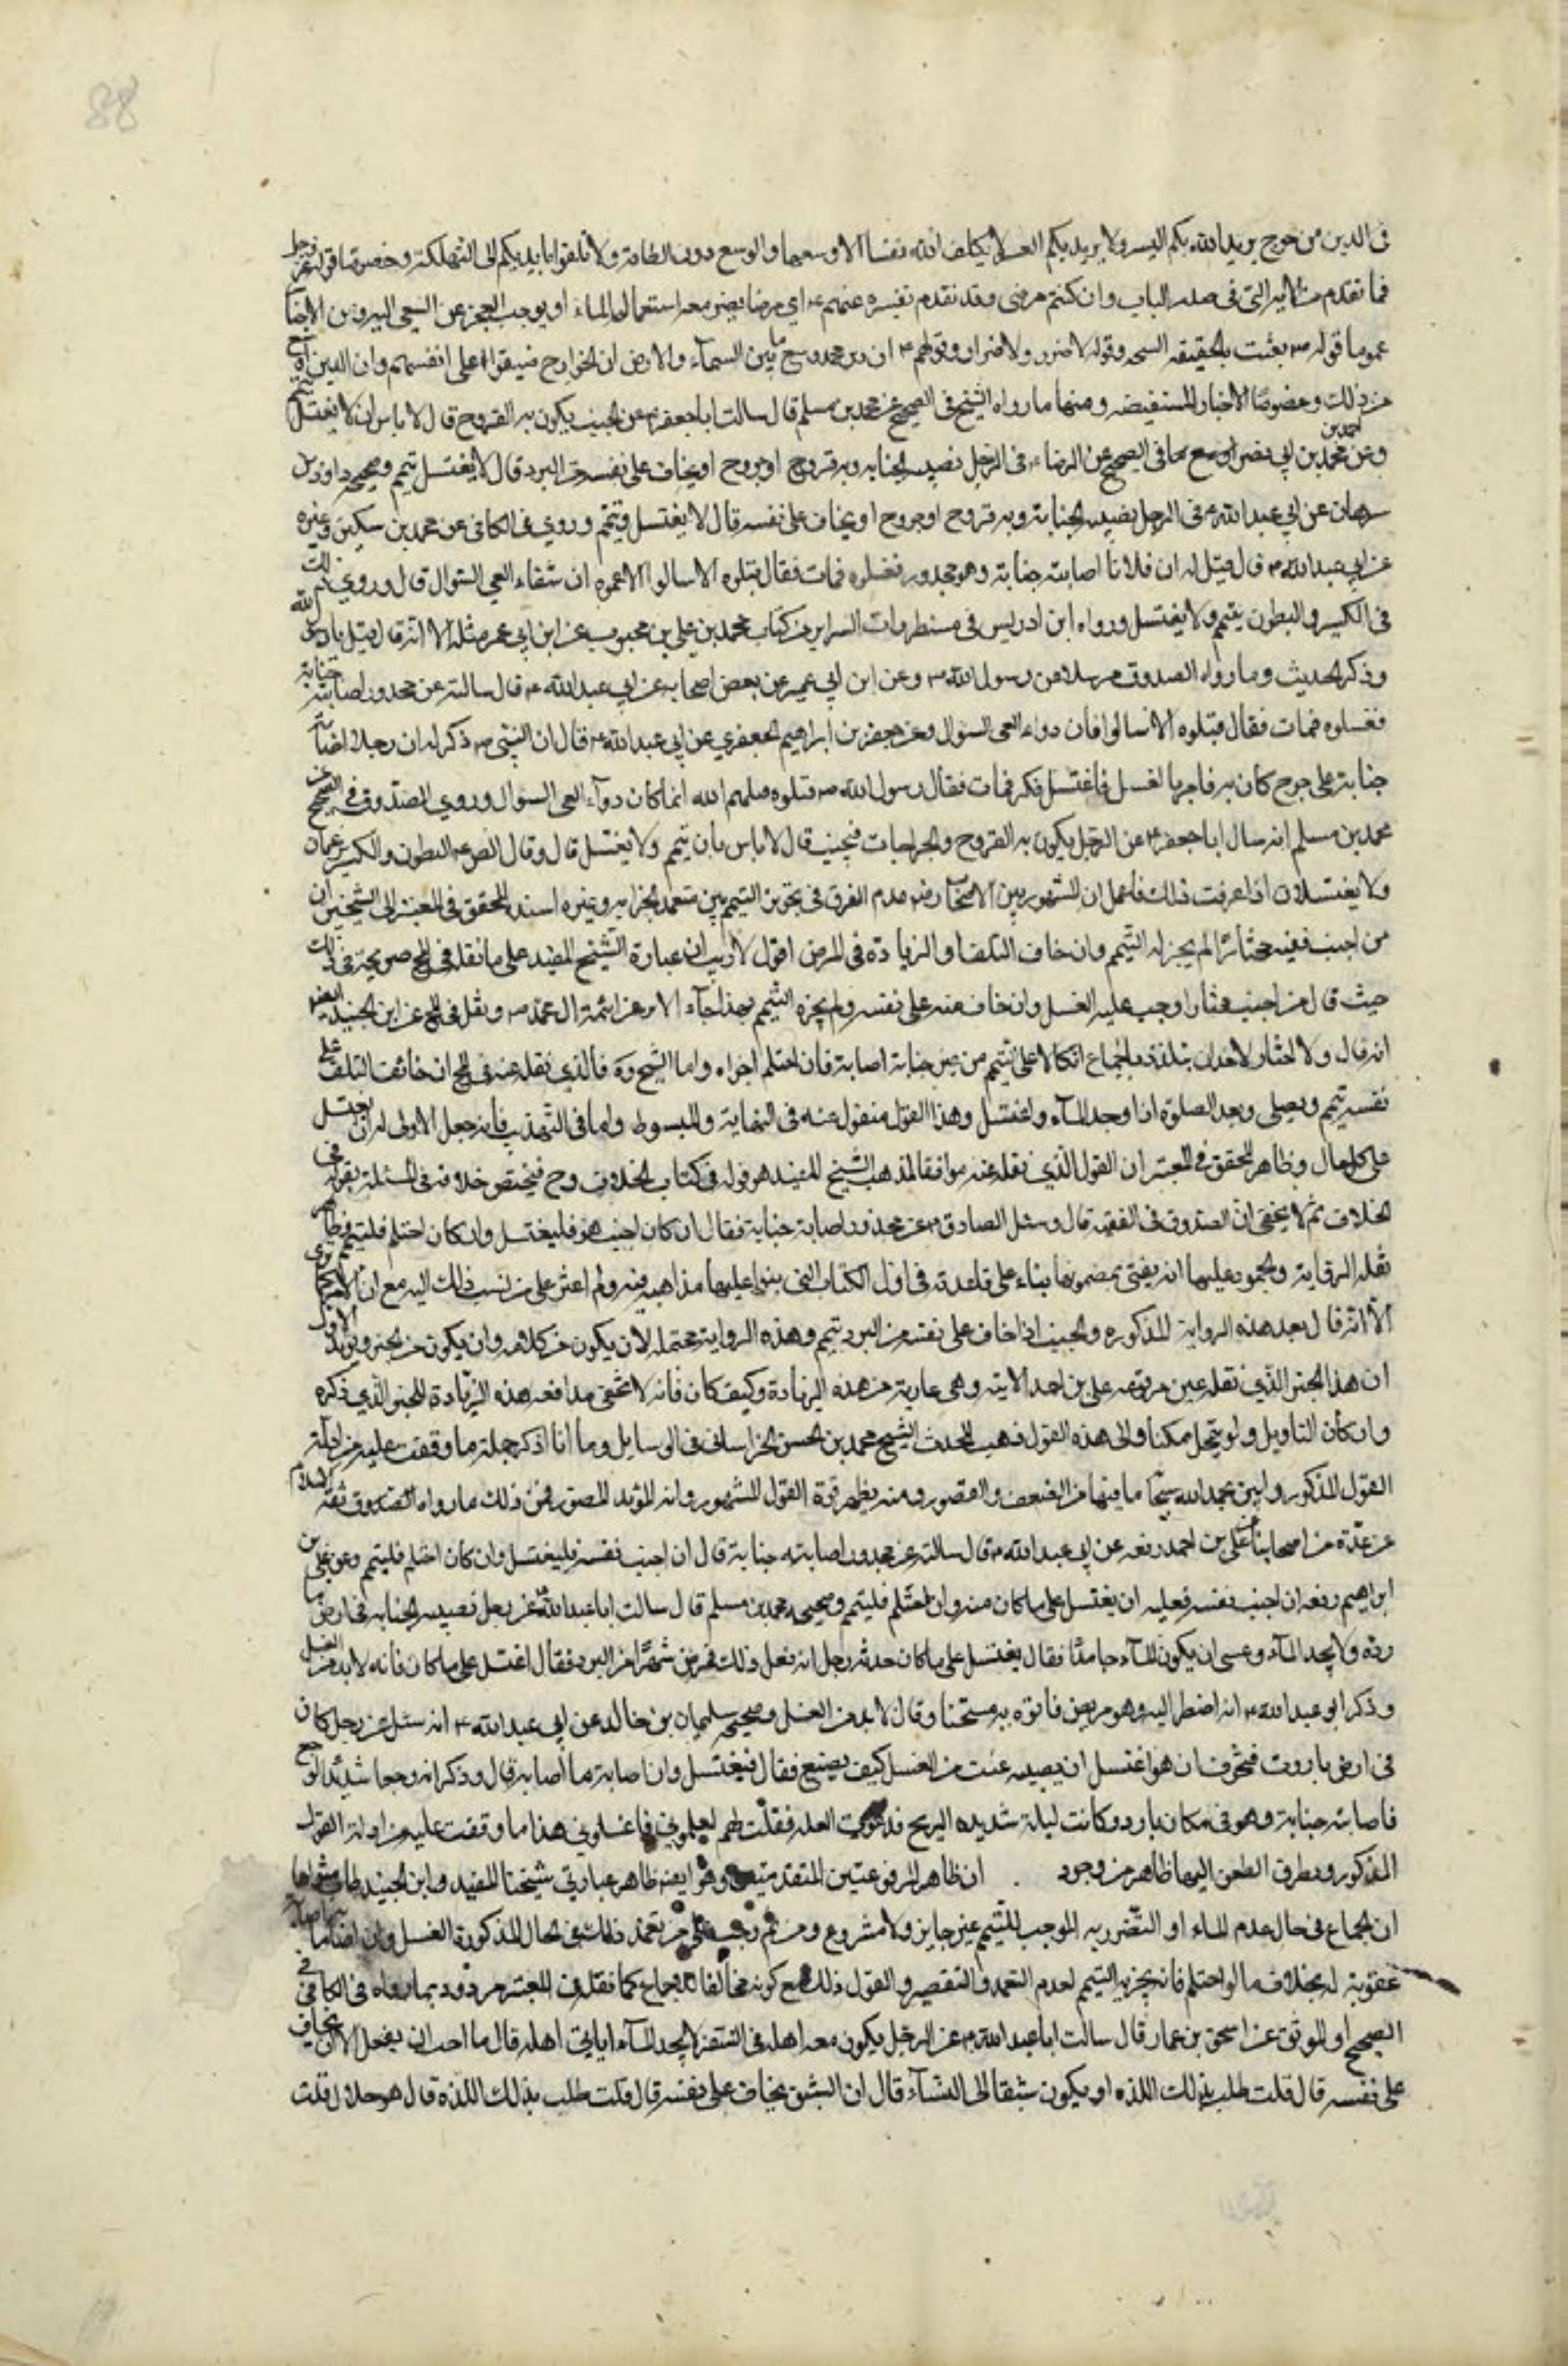 88
في الدين من حرج يريد الله بكم اليسر ولا يريد بكم العسر لا يكلف الله نفسا الا وسعها والوسع دون الطاقة ولا تلقوا بايديكم الى التهلكة وخصوصا قوله عز وجل
فما تقدم من الاية التي في صدر الباب وان كنتم مرضى وقد تقدم تفسيره عنهم ع اي مرضا يضر معه استعمال الماء او يوجب العجز عن السعي اليه ومن الاخبار
عموما قوله ص بعثت بالحنيفية السمحة وقوله لا ضرر ولا ضرار وقولهم ع ان دين محمد وسع ما بين السماء والارض ان الخوارج ضيقوا على انفسهم وان الدين اوسع
من ذلك وخصوصا الاخبار المستفيضه ومنها ما رواه الشيخ في الصحيح عن محمد بن مسلم قال سالت ابا جعفر ع عن الجنب يكون به القروح قال لا باس ان لا يغتسل يتيمم
وعن احمد بن محمد بن ابي نصر في الصحيح عن الرضاء ع في الرجل تصيبه الجنابه وبه قروح او جروح او يخاف على نفسه من البرد قال لا يغتسل يتيمم وصحيحه داود بن
سرحان عن ابي عبد الله ع في الرجل تصيبه الجنابة وبه قروح او جروح او يخاف على نفسه قال لا يغتسل ويتيمم وروي في الكافي عن محمد بن سكين وغيره
عن ابي عبد الله ع قال قيل له ان فلانا اصابته جنابة وهو مجدور فغسلوه فمات فقال قتلوه الا سالوا الا يمموه ان شفاء العي السوال قال وروي ذلك
في الكسير والمبطون يتيمم ولا يغتسل ورواه ابن ادريس في مستطرفات السراير من كتاب محمد بن علي بن محبوب عن ابن ابي عمير مثله الا انه قال قيل يا رسول الله
وذكر الحديث وما رواه الصدوق مرسلا عن رسول الله ص وعن ابن ابي عمير عن بعض اصحابه عن ابي عبد الله ع قال سالته عن مجدور اصابته جنابة
فغسلوه فمات فقال قتلوه الا سالوا فان دواء العي السوال وعن جعفر بن ابراهيم الجعفري عن ابي عبد الله ع قال ان النبي ص ذكر له ان رجلا اصابته
جنابة على جرح كان به فامر بالغسل فاغتسل فكز فمات فقال رسول الله ص قتلوه قتلهم الله انما كان دواء العي السوال وروي الصدوق في الصحيح عن
محمد بن مسلم انه سال ابا جعفر ع عن الرجل يكون به القروح والجراحات فيجنب قال لا باس بان يتيمم ولا يغتسل قال وقال الص ع المبطون والكسير يؤممان
ولا يغتسلان اذا عرفت ذلك فاعمل ان المشهور بين الاصحاب رض عدم الفرق في تجويز التيمم بين متعمد الجنابه وغيره اسند المحقق في المعتبر الى الشيخين ان
من اجنب نفسه مختارا لم يجز له التيمم وان خاف التلف او الزيادة في المرض اقول لا ريب ان عبارة الشيخ المفيد على ما نقله في المخ صريحة في ذلك
حيث قال من اجنب مختارا وجب عليه الغسل وان خاف منه على نفسه ولم يجزه التيمم بهذا جاء الاثر عن ائمة ال محمد ص ونقل في المخ عن ابن الجنيد ايضا
انه قال ولا اختار لاحد ان يتلذذ بالجماع اتكالا على التيمم من غير جنابة اصابة فان احتلم اجزاه واما الشيخ ره فالذي نقله عنه في المخ ان خائف التلف على
نفسه يتيمم ويصلي ويعيد الصلوة اذا وجد الماء واغتسل وهذا القول منقول عنه في النهاية والمبسوط واما في التهذيب فانه جعل الاولى له ان يغتسل
على كل حال وظاهر المحقق في المعتبر ان القول الذي نقله عنه موافقا لمذهب الشيخ المفيد هو قوله في كتاب الخلاف وح فيختص خلافه في المسئلة بقوله في
الخلاف ثم لا يخفى ان الصدوق في الفقيه قال وسئل الصادق ع عن مجدور اصابته جنابة فقال ان كان اجنب هو فليغتسل وان كان احتلم فليتيمم وظاهر
نقله الرواية والجمود عليها انه يفتي بمضمونها بناء على قاعدته في اول الكتاب التي بنوا عليها مذاهبه فيه ولم اعثر على من نسب ذلك اليه مع ان الامر كما ترى
الا انه قال بعد هذه الرواية المذكوره والجنب اذا خاف على نفسه من البرد تيمم وهذه الرواية محتمله لان يكون من كلامه وان يكون من الخبر ويؤيد الاول
ان هذا الخبر الذي نقله عين مرفوعه علي بن احمد الاتية وهي عارية من هذه الزيادة وكيف كان فانه لا تخفى مدافعه هذه الزيادة للخبر الذي ذكره
وان كان التاويل ولو بتمحل ممكنا والى هذه القول ذهب المحدث الشيخ محمد بن الحسن الحر اساني في الوسايل وها انا اذكر جملة ما وقفت عليه من ادلة
القول المذكور وابين بحمد الله سبحانه ما فيها من الضعف والقصور ومنه يظهر قوة القول المشهور وانه المؤيد المنصور فمن ذلك ما رواه الصدوق ثقة الاسلام
عن عدة من اصحابنا عن علي بن احمد رفعه عن ابي عبد الله ع قال سالته عن مجدور اصابته جنابة قال ان اجنب نفسه فليغتسل وان كان احتلم فليتيمم وعن علي بن
ابراهيم رفعه ان اجنب نفسه فعليه ان يغتسل على ما كان منه وان احتلم فليتيمم وصحيحه محمد بن مسلم قال سالت ابا عبد الله ع عن رجل تصيبه الجنابه في ارض
ردة ولا يجد الماء وعسى ان يكون الماء جامدا فقال يغتسل على ما كان حدثه رجل انه فعل ذلك فمرض شهرا من البرد فقال اغتسل على ما كان فانه لا بد من الغسل
وذكر ابو عبد الله ع انه اضطر اليه وهو مريض فاتوه به مسخنا وقال لا بد من الغسل وصحيحه سليمان بن خالد عن ابي عبد الله ع انه سئل عن رجل كان
في ارض باردة فتخوف ان هو اغتسل ان يصيبه عنت من الغسل كيف يصنع فقال فيغتسل وان اصابته ما اصابه قال وذكر انه وجعا شديد الوجع
فاصابته جنابة وهو في مكان بارد وكانت ليلة شديده الريح فدعوت الغلمه فقلت لهم احملوني فاغسلوني هذا ما وقفت عليه من ادلة القول
المذكور وتطرق الطعن اليها ظاهر من وجوه . ان ظاهر المرفوعتين المتقدمتين وهو ايضا ظاهر عبارتي شيخنا المفيد وابن الجنيد
ان الجماع في حال عدم الماء او التضرر به الموجب للتيمم غير جايز ولا مشروع ومن ثم وجب على من تعمد ذلك في الحال المذكورة الغسل وان اصابه ما اصابه
عقوبة له بخلاف ما لو احتلم فانه يجزيه التيمم لعدم التعمد والتقصير والقول بذلك مع كونه مخالفا للاجماع كما نقله في المعتبر مردود بما رواه في الكافي في
الصحيح او الموثق عن اسحق بن عمار قال سالت ابا عبد الله ع عن الرجل يكون معه اهله في السفر لا يجد الماء اياتي اهله قال ما احب ان يفعل الا ان يخاف
على نفسه قال قلت طلب بذلك اللذه او يكون شبقا الى النساء قال ان الشبق يخاف على نفسه قال قلت طلب بذلك اللذه قال هو حلال قلت